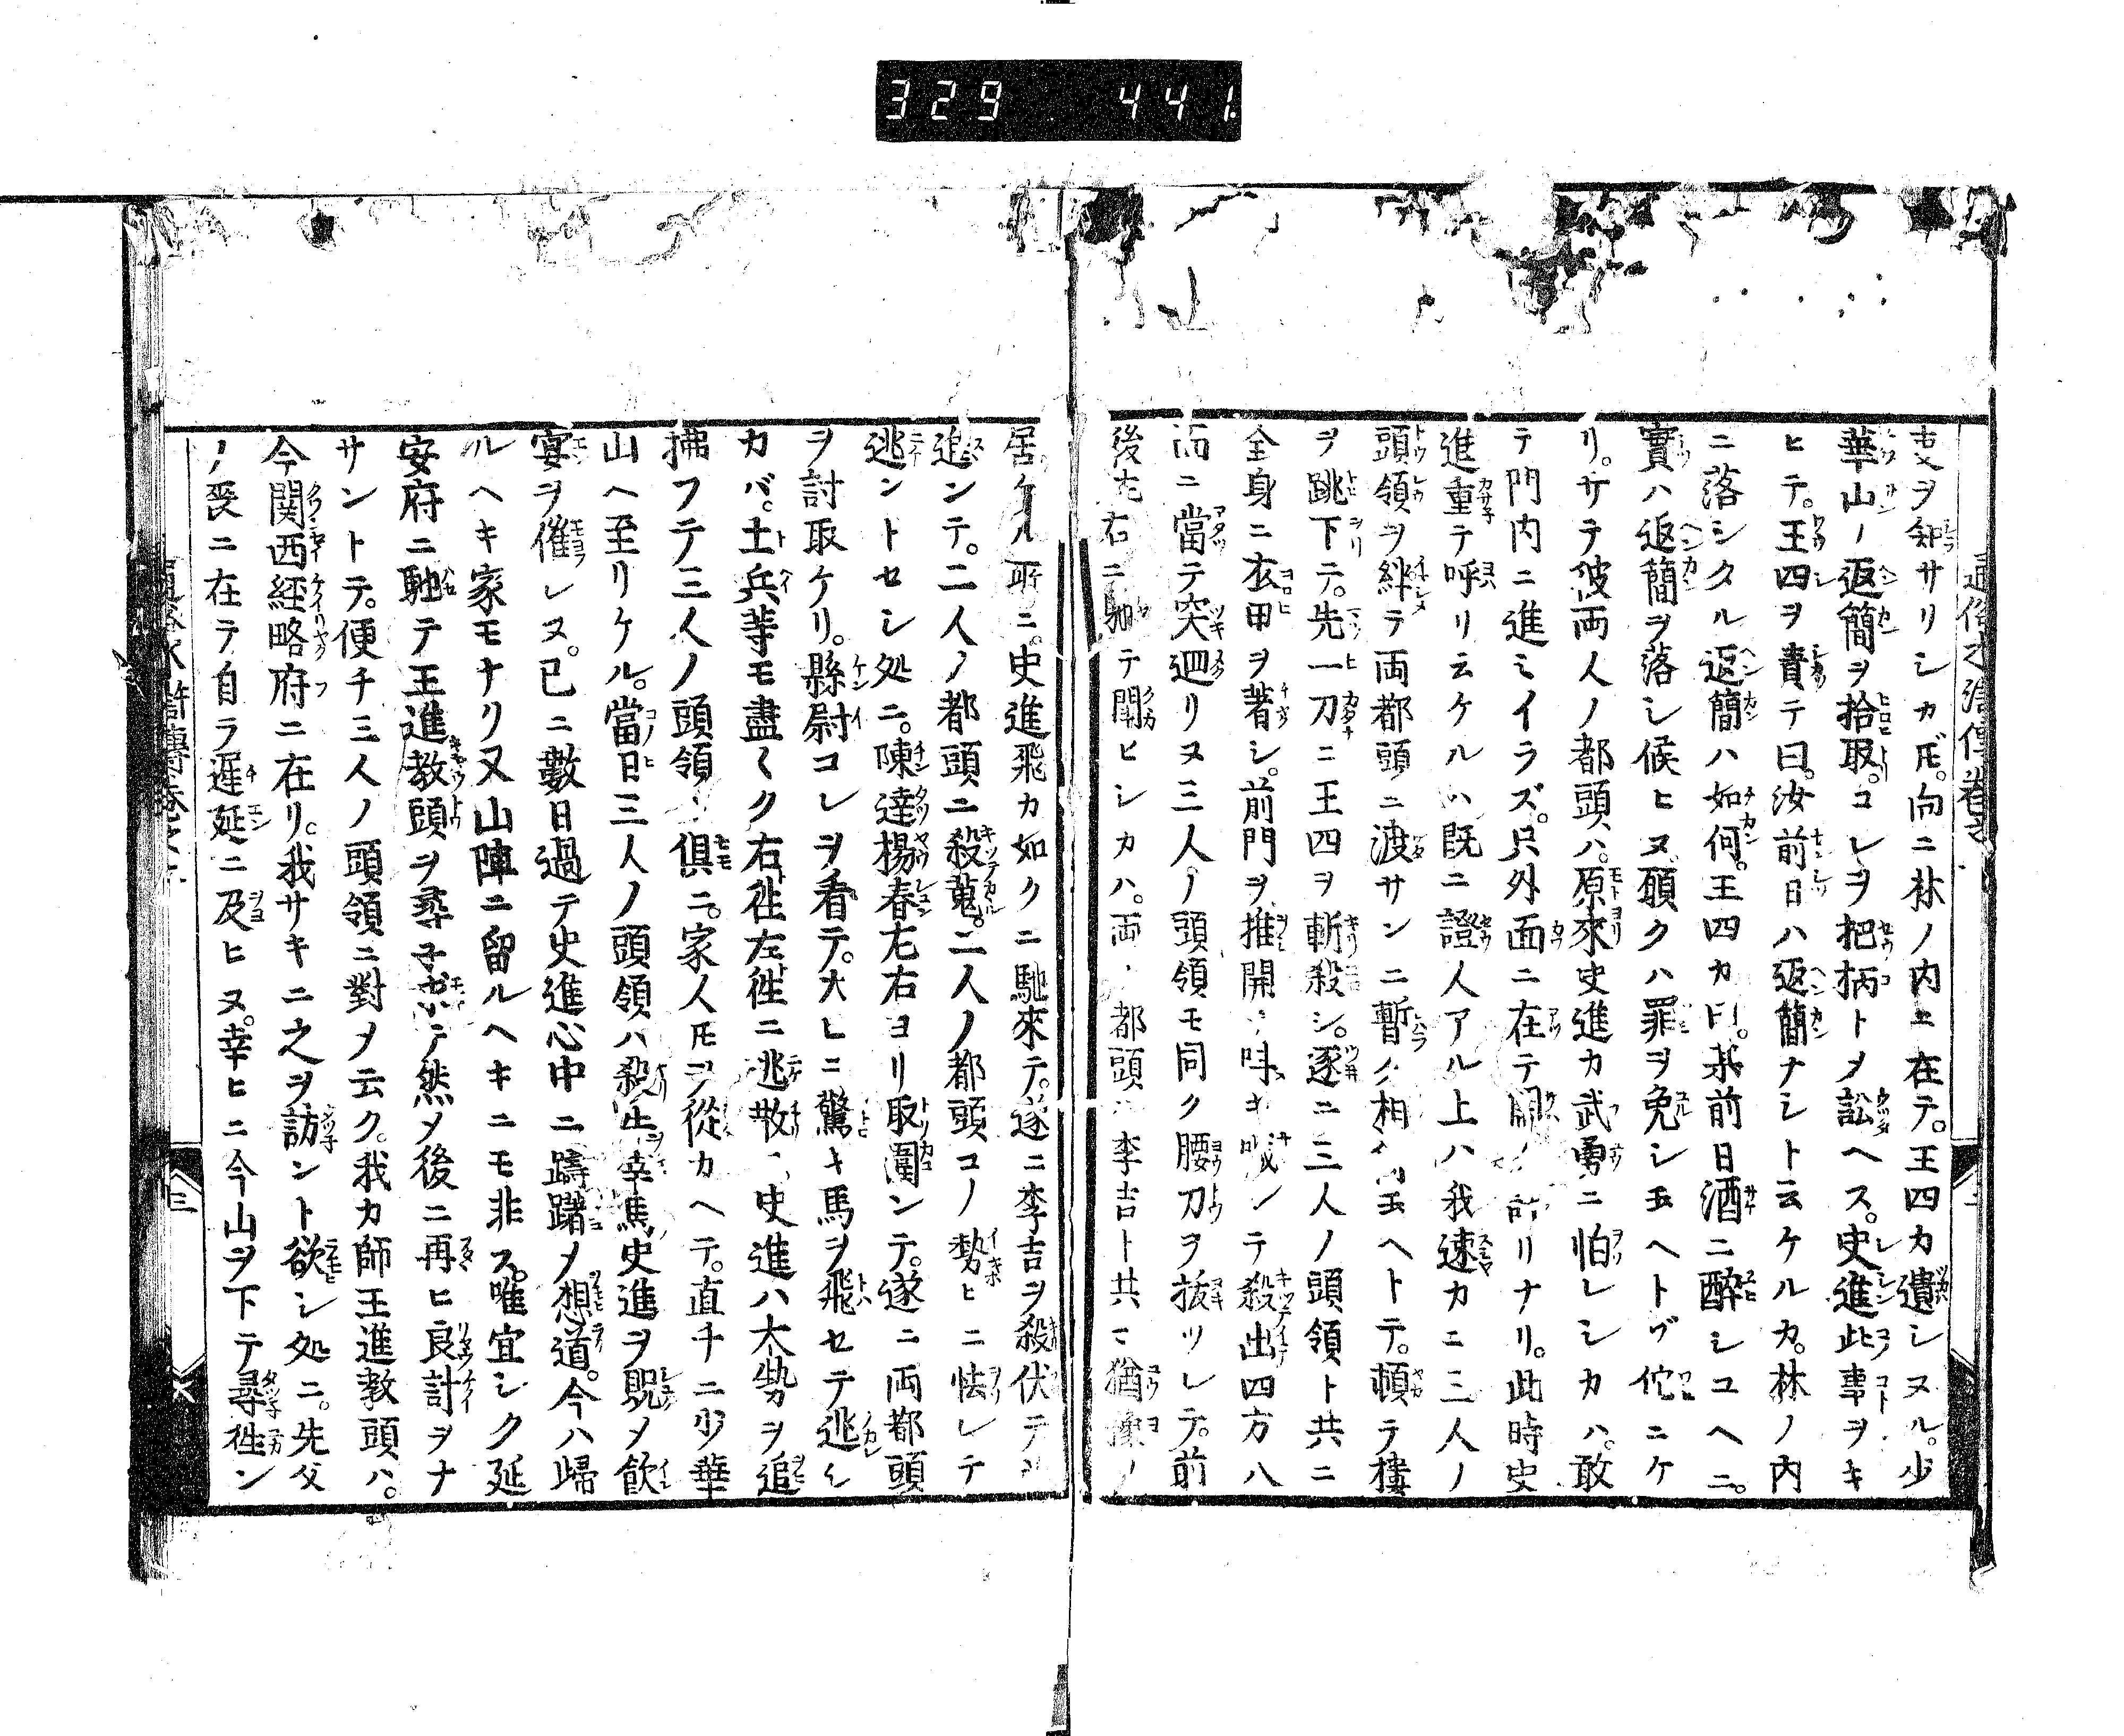 329 441
叓ヲ知サリシカ𪜈。向ニ林ノ内ニ在テ。王四カ遺シヌル。少
華山ノ返簡ヲ拾取。コレヲ把柄トメ訟ヘス。史進此事ヲキ
ヒテ。王四ヲ責テ曰。汝前日ハ返簡ナシト云ケルカ。林ノ内
ニ落シタル返簡ハ如何。王四カ曰。某前日酒ニ醉シユヘニ。
實ハ返簡ヲ落シ候ヒヌ。願クハ罪ヲ免シ玉ヘトゾ佗ニケ
リ。サテ彼両人ノ都頭ハ。原來史進カ武勇ニ怕レシカハ。敢
テ門内ニ進ミイラズ。只外面ニ在テ鬧ノ許リナリ。此時史
進重テ呼リ云ケルハ既ニ證人アル上ハ我速カニ三人ノ
頭領ヲ綁テ両都頭ニ渡サンニ暫ク相玉ヘトテ。頓テ樓
ヲ跳下テ。先一刀ニ王四ヲ斬殺シ。遂ニ三人ノ頭領ト共ニ
全身ニ衣甲ヲ著シ。前門ヲ推開キ叫キ喊ンテ殺出四方八
面ニ當テ突廻リヌ三人ノ頭領モ同ク腰刀ヲ抜ツレテ。前
後左右ニ馳テ鬪ヒシカハ。両都頭ハ李吉ト共ニ猶豫ノ
居ケル所ニ。史進飛カ如クニ馳來テ。遂ニ李吉ヲ殺伏テ
追ンテ。二人ノ都頭ニ殺蒐。二人ノ都頭コノ勢ヒニ怯レテ
逃ントセシ処ニ。陳達楊春左右ヨリ取圍ンテ。遂ニ両都頭
ヲ討取ケリ。縣尉コレヲ看テ。大ヒニ驚キ馬ヲ飛セテ逃シ
カバ。土兵等モ盡ク右徃左徃ニ逃散ル史進ハ大勢ヲ追
拂フテ三人ノ頭領ト倶ニ。家人𪜈ヲ從カヘテ。直チニ少華
山ヘ至リケル。當日三人ノ頭領ハ殺牛宰馬史進ヲ貺メ飲
宴ヲ催レヌ。已ニ數日過テ史進心中ニ躊躇メ想道。今ハ歸
ルヘキ家モナリ又山陣ニ留ルヘキニモ非ス。唯宜シク延
安府ニ馳テ王進教頭ヲ尋子ガハテ然メ後ニ再ヒ良計ヲナ
サントテ。便チ三人ノ頭領ニ對メ云ク。我カ師王進教頭ハ。
今関西経略府ニ在リ。我サキニ之ヲ訪ント欲シ処ニ。先父
ノ喪ニ在テ自ラ遲延ニ及ヒヌ。幸ヒニ今山ヲ下テ尋徃ン